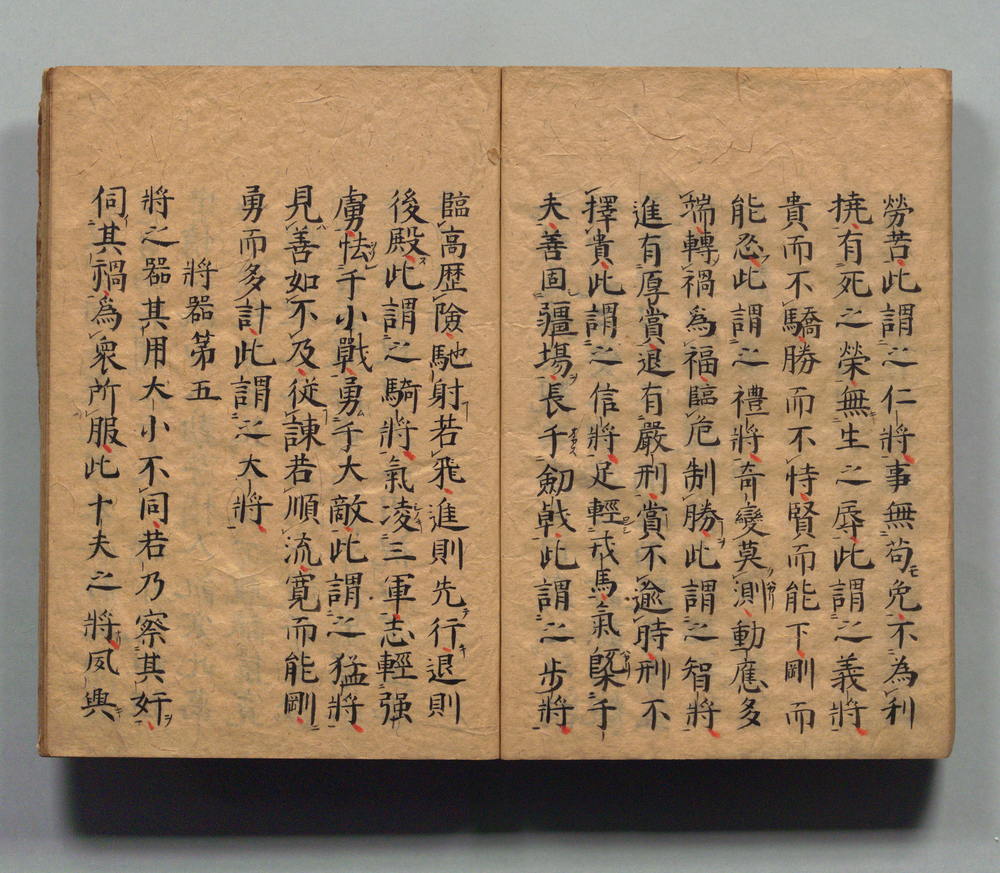 勞苦此謂之仁將事無苟免不為利
撓有死之榮無生之辱此謂之義將
貴而不驕勝而不恃賢而能下剛而
能忍此謂之禮將奇變莫測動應多
端轉禍為福臨危制勝此謂之智將
進有厚賞退有嚴刑賞不逾時刑不
擇貴此謂之信將足輕戎馬氣槩千
夫善固疆場長千劔戟此謂之步將
臨高歴險馳射若飛進則先行退則
後殿此謂之騎將氣凌三軍志輕强
虜怯千小戰勇千大敵此謂之猛將
見善如不及従諌若順流寛而能剛
勇而多計此謂之大將
將器第五
將之器其用大小不同若乃察其奸
伺其禍為衆所服此十夫之將夙興